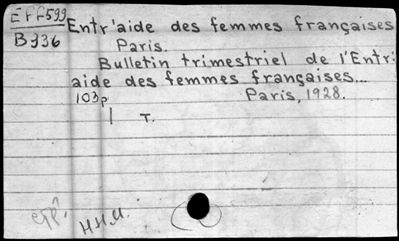 EFF599
B936
Entr'aide des femmes françaises
Paris.
Bulletin trimestriel de l'Entr'
aide des femmes françaises...
103p Paris, 1928.
T.
H.H.U.